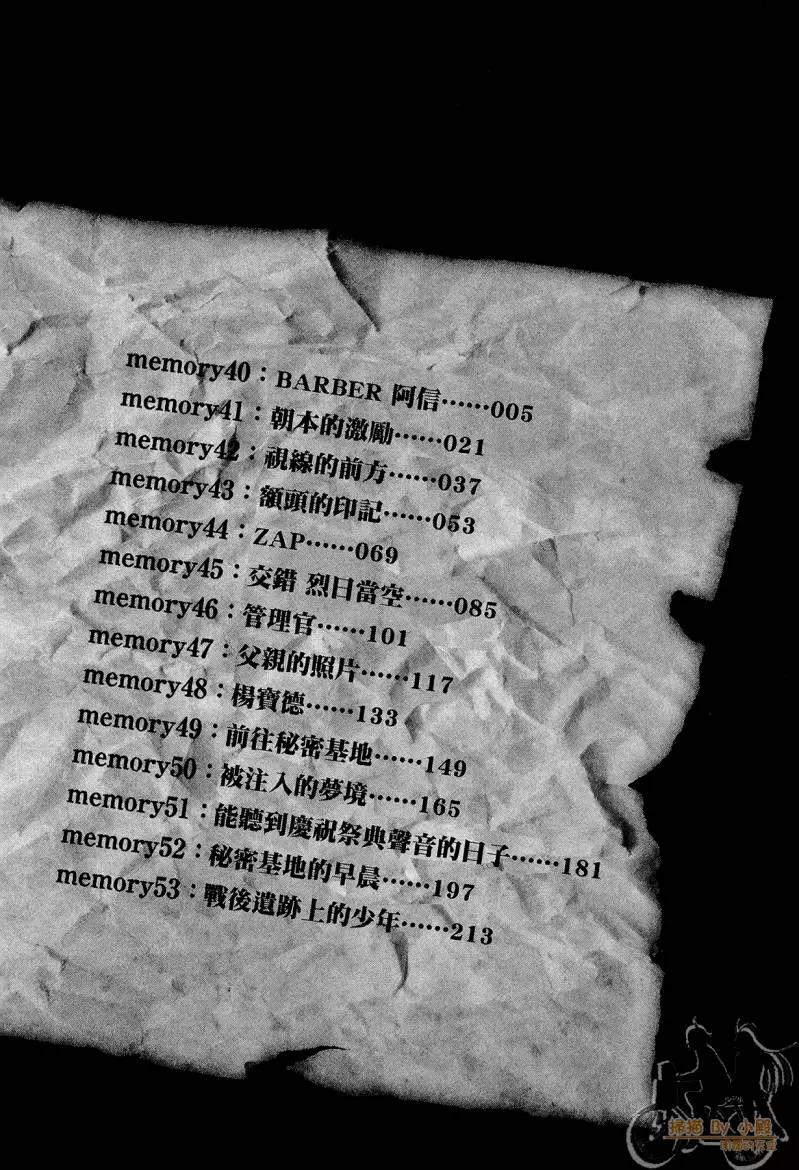 memory40：BARBER 阿信……005
memory41：朝本的激勵……021
memory42：視線的前方……037
memory43：額頭的印記……053
memory44：ZAP……069
memory45：交錯 烈日當空……085
memory46：管理官……101
memory47：父親的照片……117
memory48：楊寶德……133
memory49：前往秘密基地……149
memory50：被注入的夢境……165
memory51：能聽到慶祝祭典聲音的日子……181
memory52：秘密基地的早晨……197
memory53：戰後遺跡上的少年……213
掃猫 By 小殿